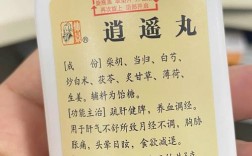 逍遥丸
[成 份]柴胡、当归、白芍、
炒白术、茯苓、炙甘草、薄荷、
生姜，辅料为饴糖。
[功能主治]疏肝健脾，养血调经。
用于肝气不舒所致月经不调，胸胁
胀痛，头晕目眩，食欲减退。